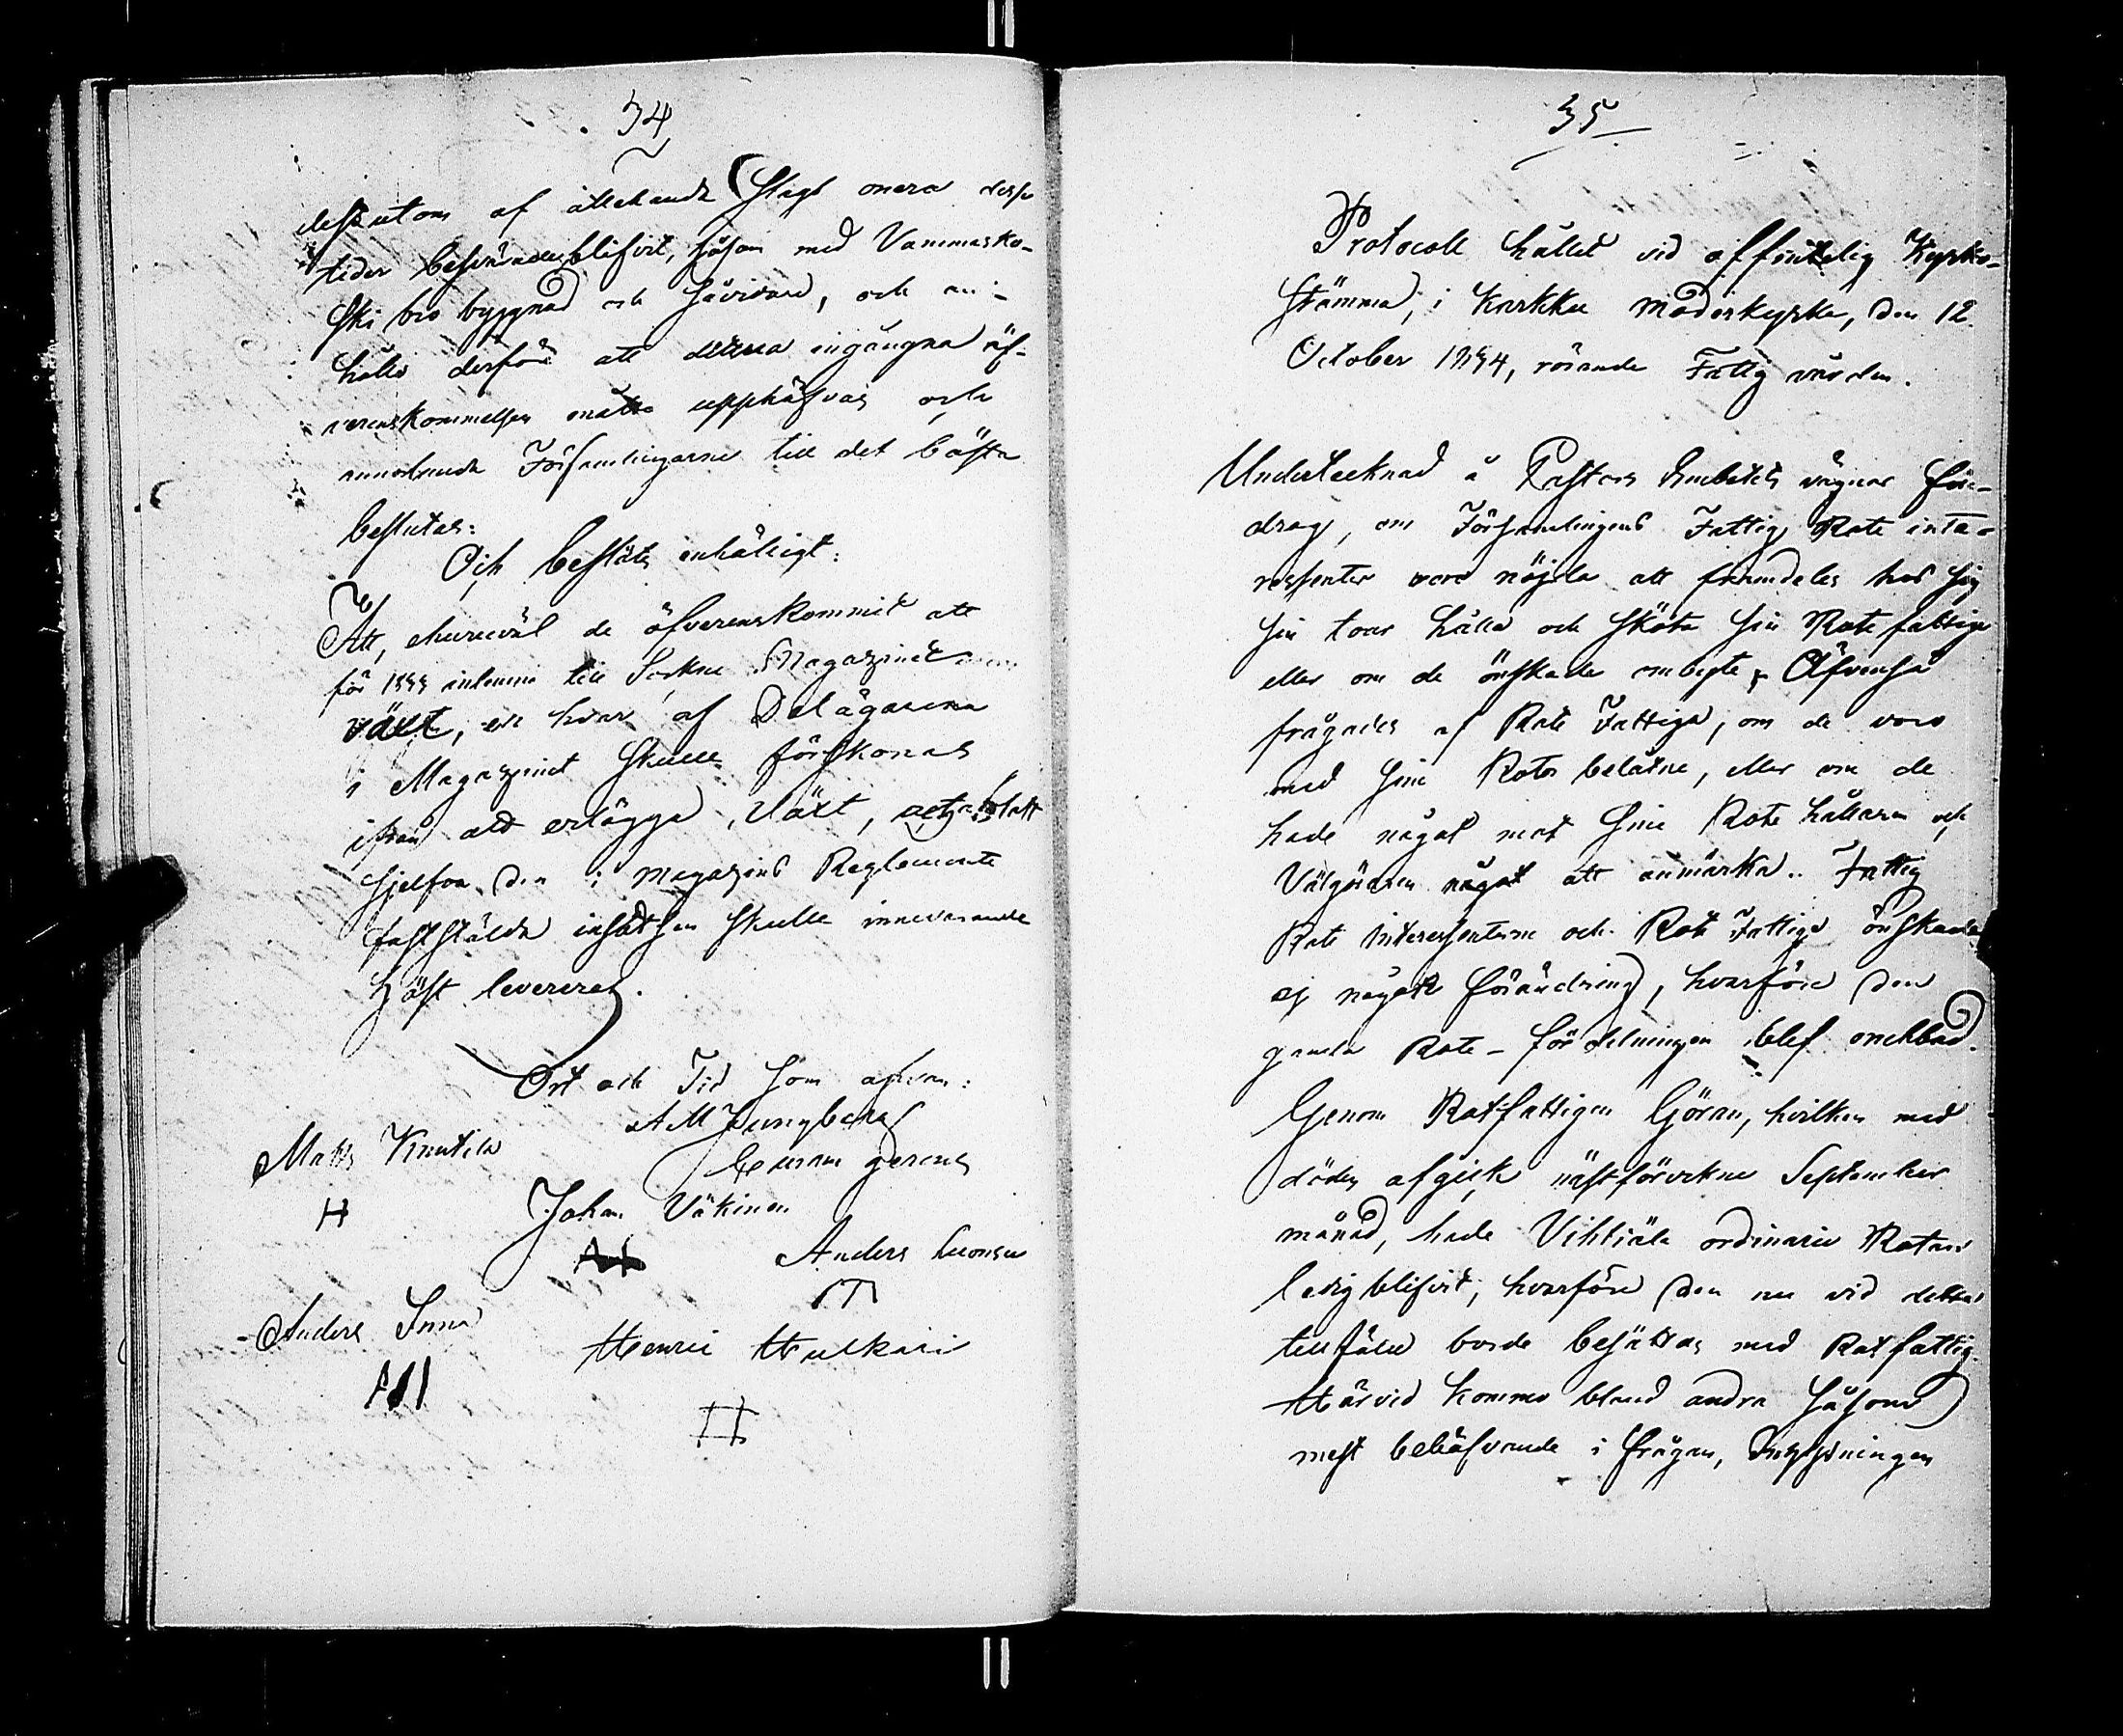 34
dessutom af allehanda slags onera dessa
tider besvärade blifvit, såsom med Vammasko-
ski bro byggnad och såvidare, och an-
hålla derföre att denna ingångna öf-
verenskommelsen måtte upphäfvas och
annorlunda Församlingarne till det bästa
beslutas:
Och beslöts enhälligt:
Att, ehuruväl de öfverenskommit att
för intemna till Sockne Magazinet
växt, en hvar af Delägarena
i Magazinet skulle förskonas
ifrån att erlägga växt, utan blott
sjelfva den i Magazins Reglemente
fastställda insatsen skulle innevarande
Höst levereras.
Ort och Tid som ofvan:
A M Ljungberg
Matts Knutila
Johan Väkinen
Anders Luonsu
Anders
Henric Hulkari
35
Protocoll hållet vid offentelig Kyrko-
stämma, i Karkku Moderkyrka, den 12
October 1854, rörande Fattig vården.
Undertecknad å Pastors Embetets vägnar före-
drog, om Församlingens Fattig Rote inta-
ressenter voro nöjda att framdeles hos sig
sin tour hålla och sköta sin Rote fattige
eller om de önskade ombyte. Äfvenså
frågades af Rote Fattige, om de voro
med sine Rotor belåtne, eller om de
hade något mot sine Rote hållaren och
Välgöraren något att anmärka. Fattig
Rote Interessenterne och Rote Fattige önskade
ej någon förändring, hvarföre den
gamla Rote-fördelningen blef orubbad.
Genom Rotfattigen Göran, hvilken med
döden afgick nästförvekne September
månad, hade Vihtiälä ordinarie Rotan
ledig blifvit, hvarföre den nu vid detta
tillfälle borde besättas med Rotfattig.
Härvid kommo bland andra såsom
mest behöfvande i frågan, Inhysningen